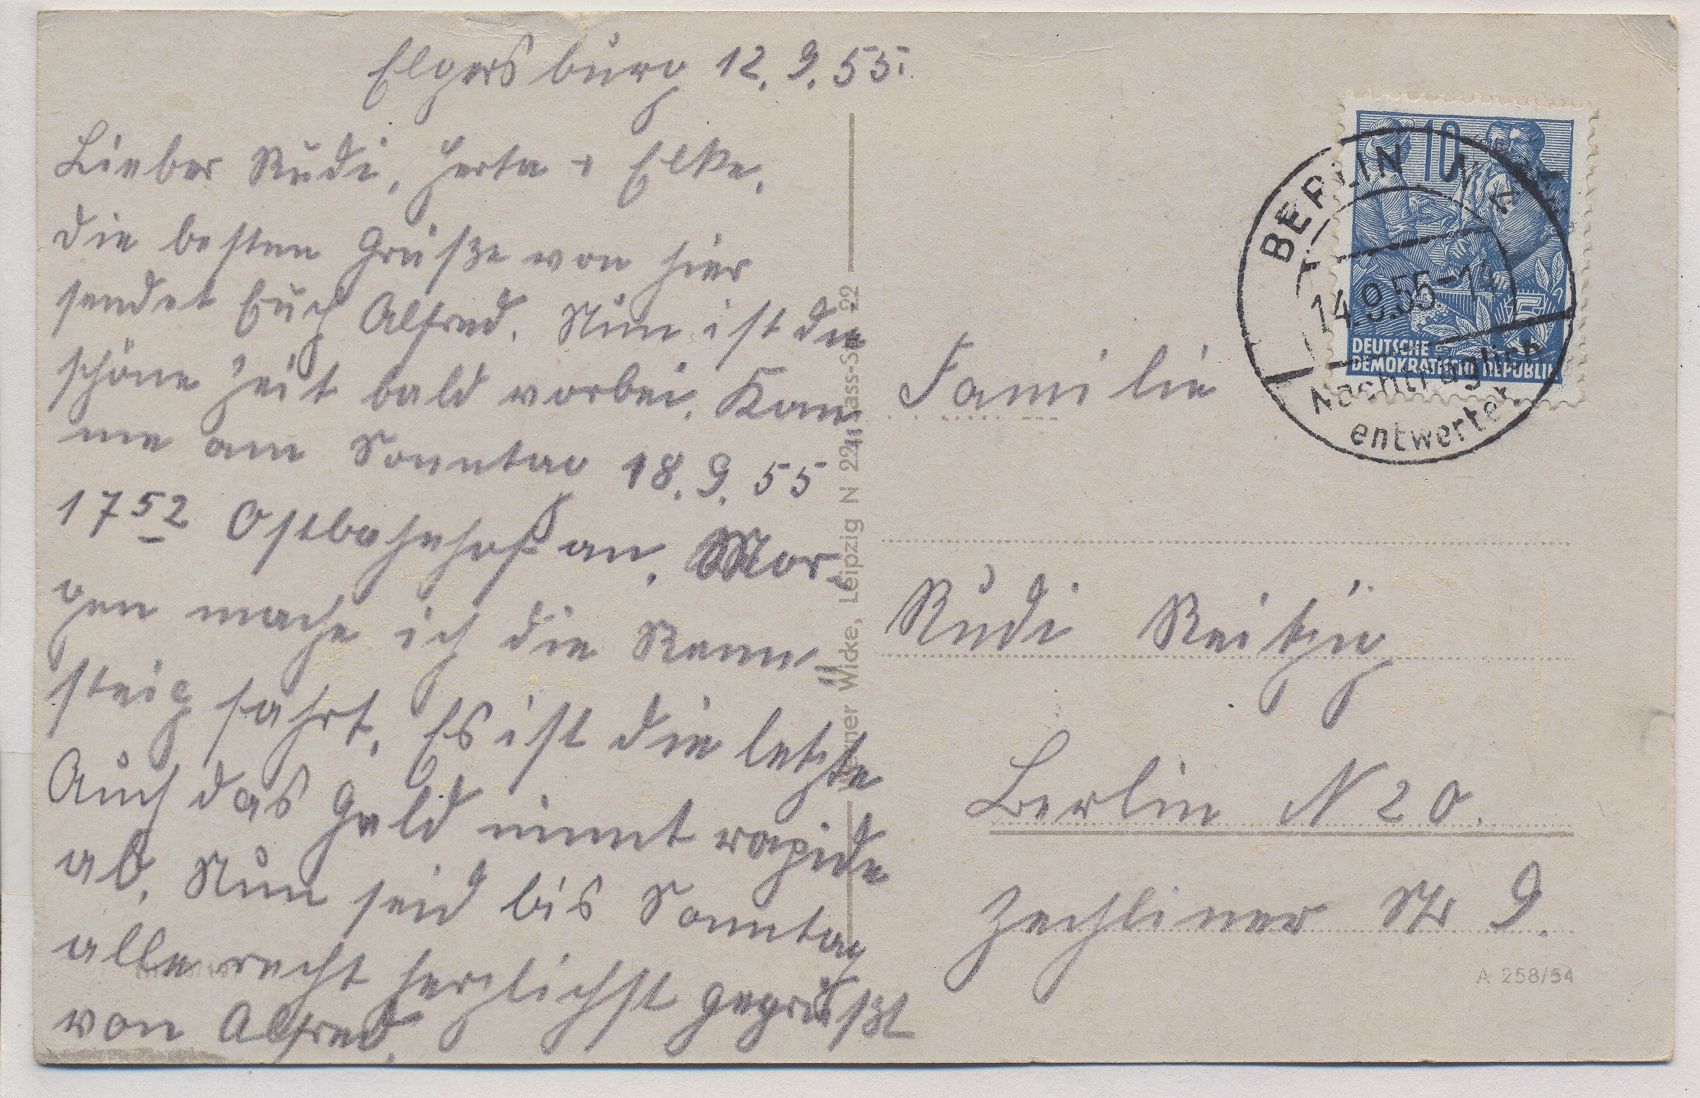 Elgersburg 12. 9. 55.
Lieber Rudi, Herta + Elke,
die besten Grüße von hier
sendet Euch Alfred. Nun ist die
schöne Zeit bald vorbei. Kom-
me am Sonntag 18. 9. 55
17 52 Ostbahnhof an. Mor-
gen mache ich die Renn-
steigfahrt. Es ist die letzte
Auch das Geld nimmt rapide
ab. Nun seid bis Sonntag
alle recht herzlichst gegrüßt
von Alfred.
Wicke, Leipzig N 22
BERLIN N 4
14.9.55-14
Nachträglich
entwertet
10
5
DEUTSCHE
DEMOKRATISCHE REPUBLIK
Familie
Rudi
Berlin N 20.
Zechliner Str 9.
A 258/54